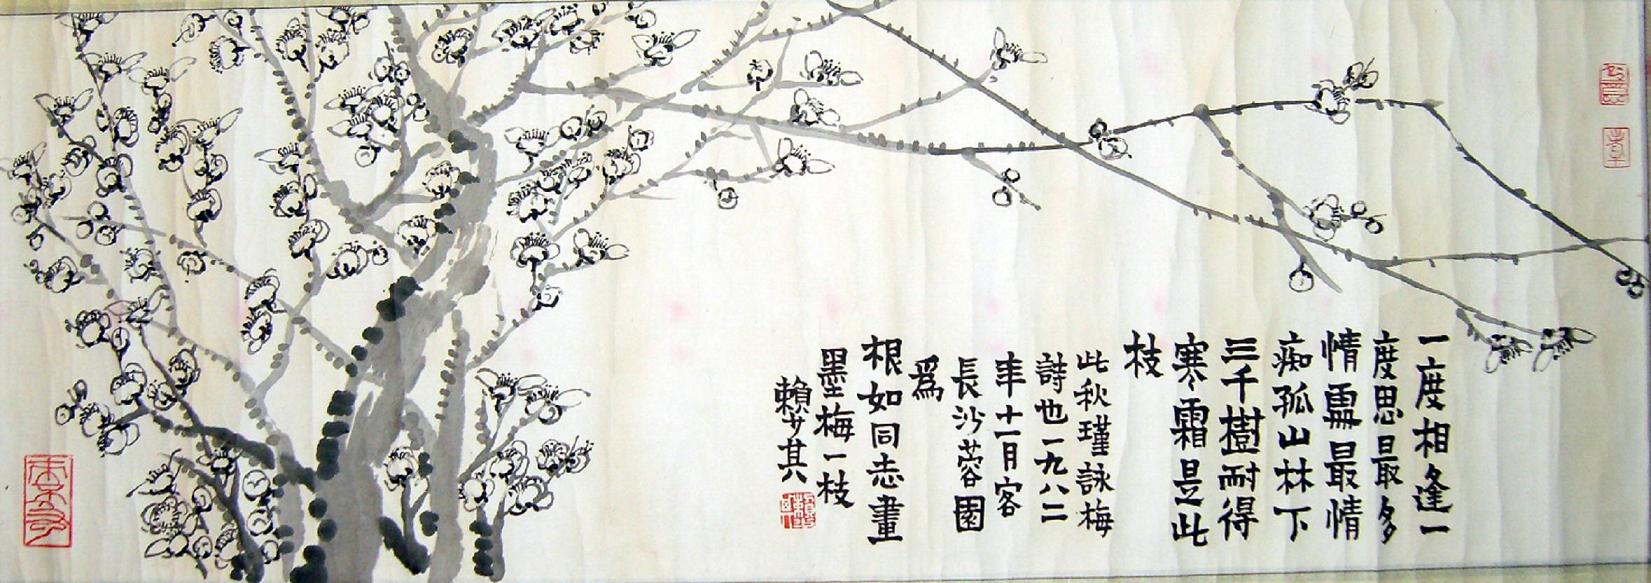 一度相逢一
度思最多
情處最情
痴孤山林下
三千樹耐得
寒霜是此
枝
此秋瑾詠梅
詩也一九八二
年十一月客
長沙蓉園
爲
根如同志畫
墨梅一枝
賴少其